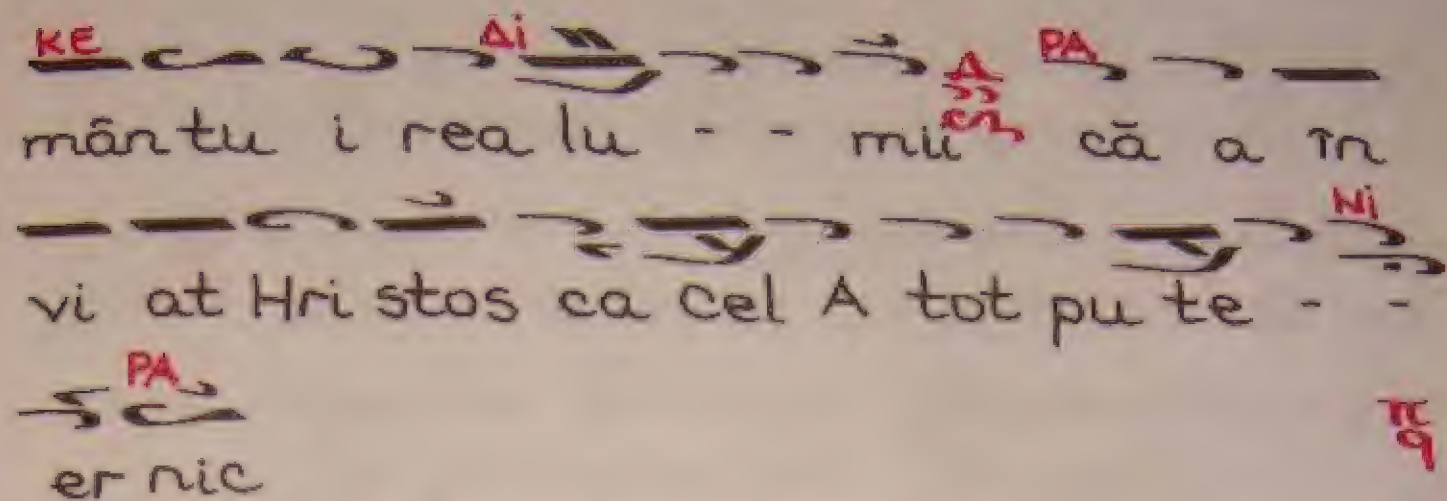 KE Δi
mân tu i rea lu - - mii PA că a în
vi at Hri stos ca Cel A tot pu te - - Ni
PA
er nic